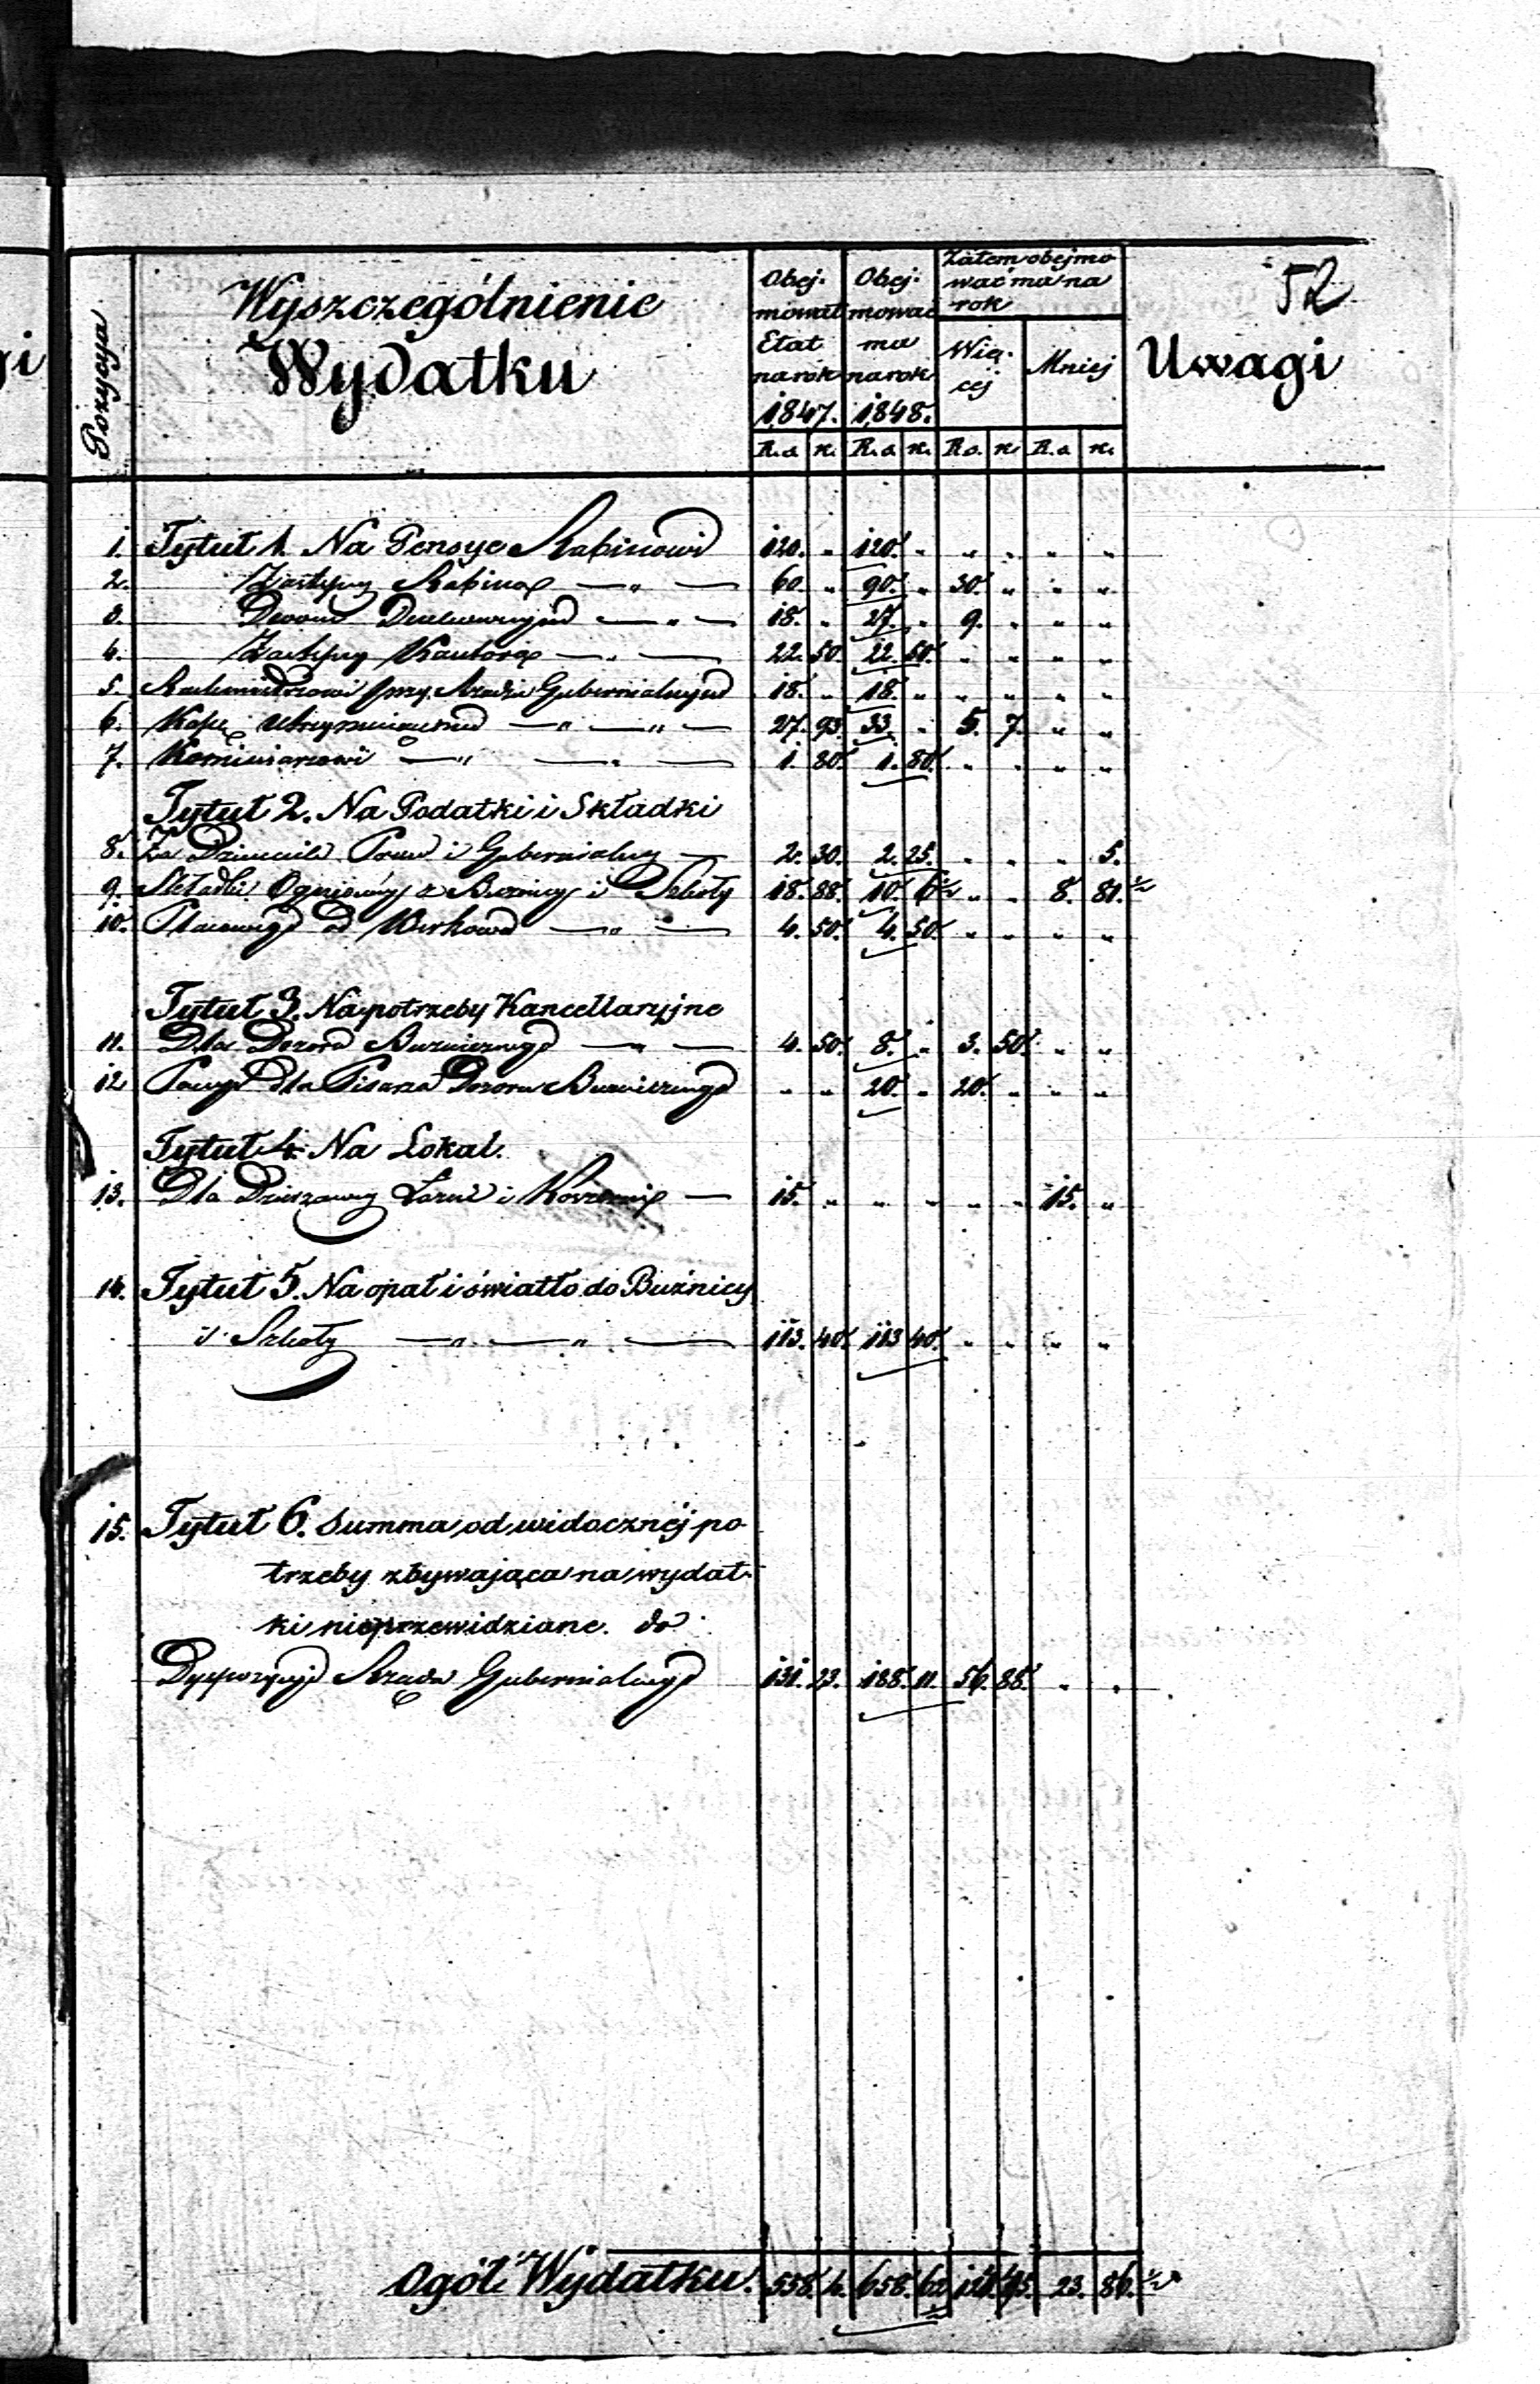 52
Pozycya
Wyszczególnienie
Wydatku
Obej-
mował
Etat
na rok
1847.
Obej-
mować
ma
na rok
1848.
Zatem obejmo
wać ma na
rok
Wię-
cej
Mniej
Uwagi
R.s. k. R.s. k. R.s. k. R.s. k.
1. Tytuł 1. Na Pensye Rabinowi 120. " 120. " " " " "
2. Zastępcy Rabina — " — 60. " 90. " 30. " " "
3. Dwom Duchownym — " — 18. " 27. " 9. " " "
4. Zastępcy Kantora — " — 22. 50 22. 50. " " " "
5. przy Rządzie Gubernialnym 18. " 18. " " " " "
6. — " — " — 27. 93. 33. " 5. 7. " "
7. Kominiarzowi — " — " — 1. 80. 1. 80. " " " "
Tytuł 2. Na Podatki i Składki
8. Za Dziennik Praw i Gubernialny — 2. 30. 2. 25. " " " 5.
9. Składki Ogniowéj z Buznicy i Szkoły 18. 88. 10. 6½ " " 8. 81.½
10. od — " — 4. 50. 4. 50. " " " "
Tytuł 3. Na potrzeby Kancellaryjne
11. Dla Dozoru Buzniczego — " — 4. 50. 8. " 3. 50. " "
12 dla Pisarza Dozoru Buzniczego " " 20. " 20. " " "
Tytuł 4. Na Lokal.
13. Dla Dzierżawcy Łazni i — 15. " " " " " 15. "
14. Tytuł 5. Na opał i światło do Buźnicy
i Szkoły — " — " — 113. 40. 113 40. " " " "
15. Tytuł 6. Summa od widocznéj po
trzeby zbywająca na wydat-
ki nieprzewidziane. do
Dyspozycyi Rządu Gubernialnego 131. 23. 188. 11. 56. 88. " "
Ogół Wydatku. 558. 4. 658. 62½ 23. 86.½